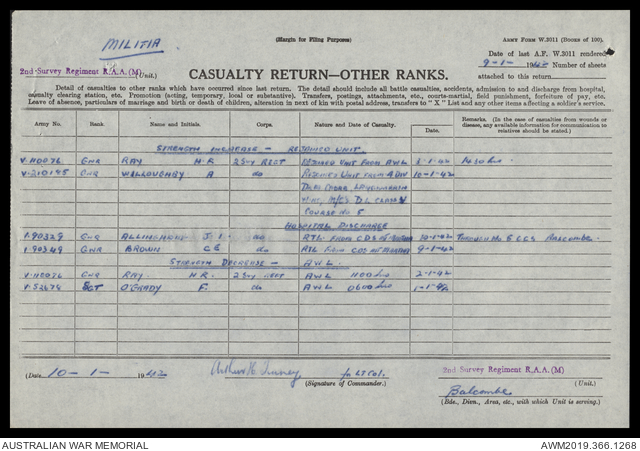 MILITIA
(Margin for Filing Purposes)
ARMY FORM W.3011 (BOOKS OF 100).
Date of last A.F. W.3011 rendered
9-1- 1942 Number of sheets
attached to this return
2nd Survey Regiment R.A.A. (M) (Unit.)
CASUALTY RETURN—OTHER RANKS.
Detail of casualties to other ranks which have occurred since last return. The detail should include all battle casualties, accidents, admission to and discharge from hospital,
casualty clearing station, etc. Promotion (acting, temporary, local or substantive). Transfers, postings, attachments, etc., courts-martial, field punishment, forfeiture of pay, etc.
Leave of absence, particulars of marriage and birth or death of children, alteration in next of kin with postal address, transfers to "X" List and any other items affecting a soldier's service.
Army No. Rank. Name and Initials. Corps. Nature and Date of Casualty. Date. Remarks. (In the case of casualties from wounds or disease, any information available for communication to relatives should be stated.)
STRENGTH INCREASE - REJOINED UNIT.
V.110076 GNR RAY H.R. 2 SVY REGT REJOINED UNIT FROM AWL 8-1-42 1430 hrs.
V.210195 GNR WILLOUGHBY A do REJOINED UNIT FROM 4 DIV 10-1-42
COURSE No 5
HOSPITAL DISCHARGE
V.90329 GNR ALLINGHAM J. I. do RTU FROM CDS MT MARTHA 10-1-42 Balcombe.
V.90349 GNR BROWN C B do RTU FROM CDS MT MARTHA 9-1-42
STRENGTH DECREASE - AWL.
V.110076 GNR RAY. H.R. 2 SVY REGT AWL 1100 hrs 2-1-42
V.52678 SGT O'GRADY F. do AWL 0600 hrs 1-1-42
(Date 10-1- 1942 for LT COL.
(Signature of Commander.)
2nd Survey Regiment R.A.A. (M)
(Unit.)
Balcombe
(Bde., Divn., Area, etc., with which Unit is serving.)
AUSTRALIAN WAR MEMORIAL
AWM2019.366.1268